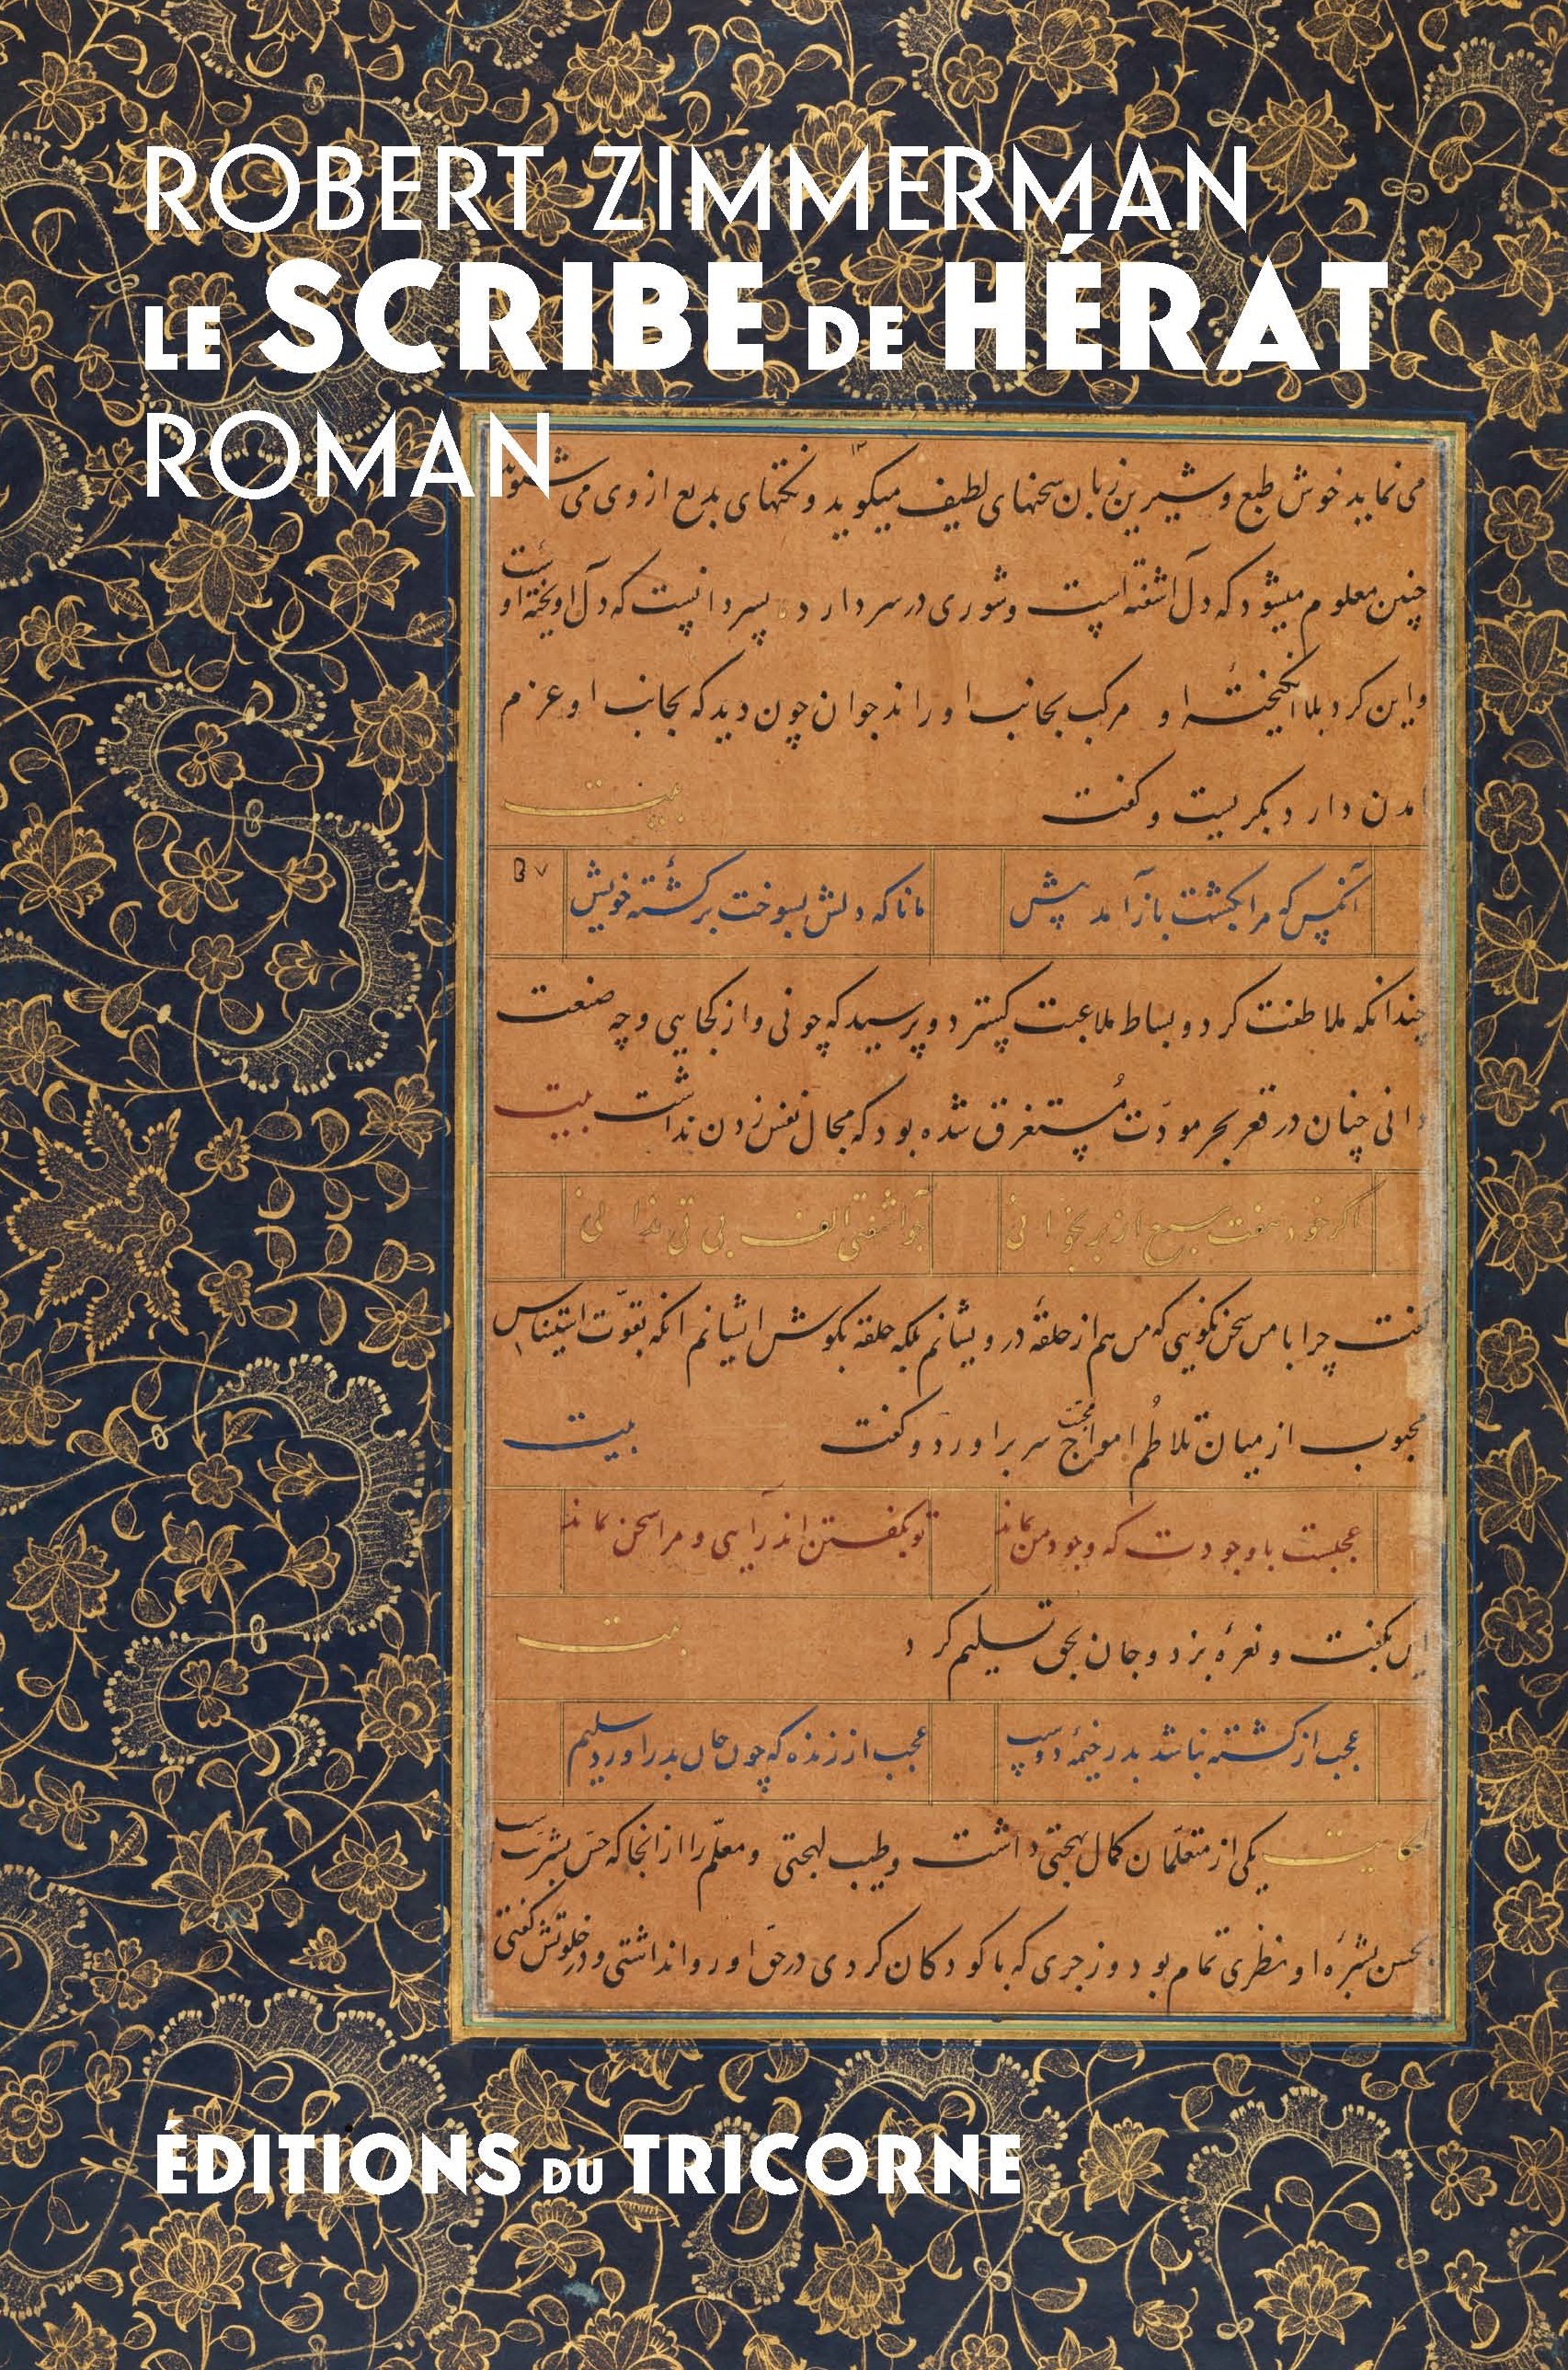 ROBERT ZIMMERMAN
LE SCRIBE DE HÉRAT
ROMAN
می نماید خوش طبع و شیرین زبان سخنهای لطیف میگوید و نکتهای بدیع از وی می شنوند
چنین معلوم میشود که دل اشفته است و شوری در سر دارد پسر دانست که دل اویخته اوست
واین کرد بلا انگیخته او مرکب بجانب او راند جوان چون دید که بجانب او عزم
امدن دارد بگریست و گفت بیت
آنکس که مرا بکشت باز آمد پیش مانا که دلش بسوخت بر کشته خویش
چندانکه ملاطفت کرد و بساط ملاعبت گسترد و پرسید که چونی و از کجایی و چه صنعت
دانی چنان در قعر بحر مودت مستغرق شده بود که مجال نفس زدن نداشت بیت
اگر خود هفت سبع از بر بخوانی چو آشفتی الف بی تی ندانی
گفت چرا با من سخن نگویی که من هم از حلقۀ درویشانم بلکه حلقه بگوش ایشانم انکه بقوّت استیناس
محبوب از میان تلاطُم امواج محبت سر براورد و گفت بیت
عجبست با وجودت که وجود من بماند تو بگفتن اندر آیی و مرا سخن بماند
این بگفت و نعرۀ بزد و جان بحق تسلیم کرد بیت
عجب از کشته نباشد بدر خیمۀ دوست عجب از زنده که چون جان بدر اورد سلیم
حکایت یکی از متعلّمان کمال بهجتی داشت و طیب لهجتی و معلّم را از انجا که حسّ بشریت
بحسن بشرۀ او نظری تمام بود و زجری که با کودکان کردی در حق او روا نداشتی و در خلوتش گفتی
ÉDITIONS DU TRICORNE